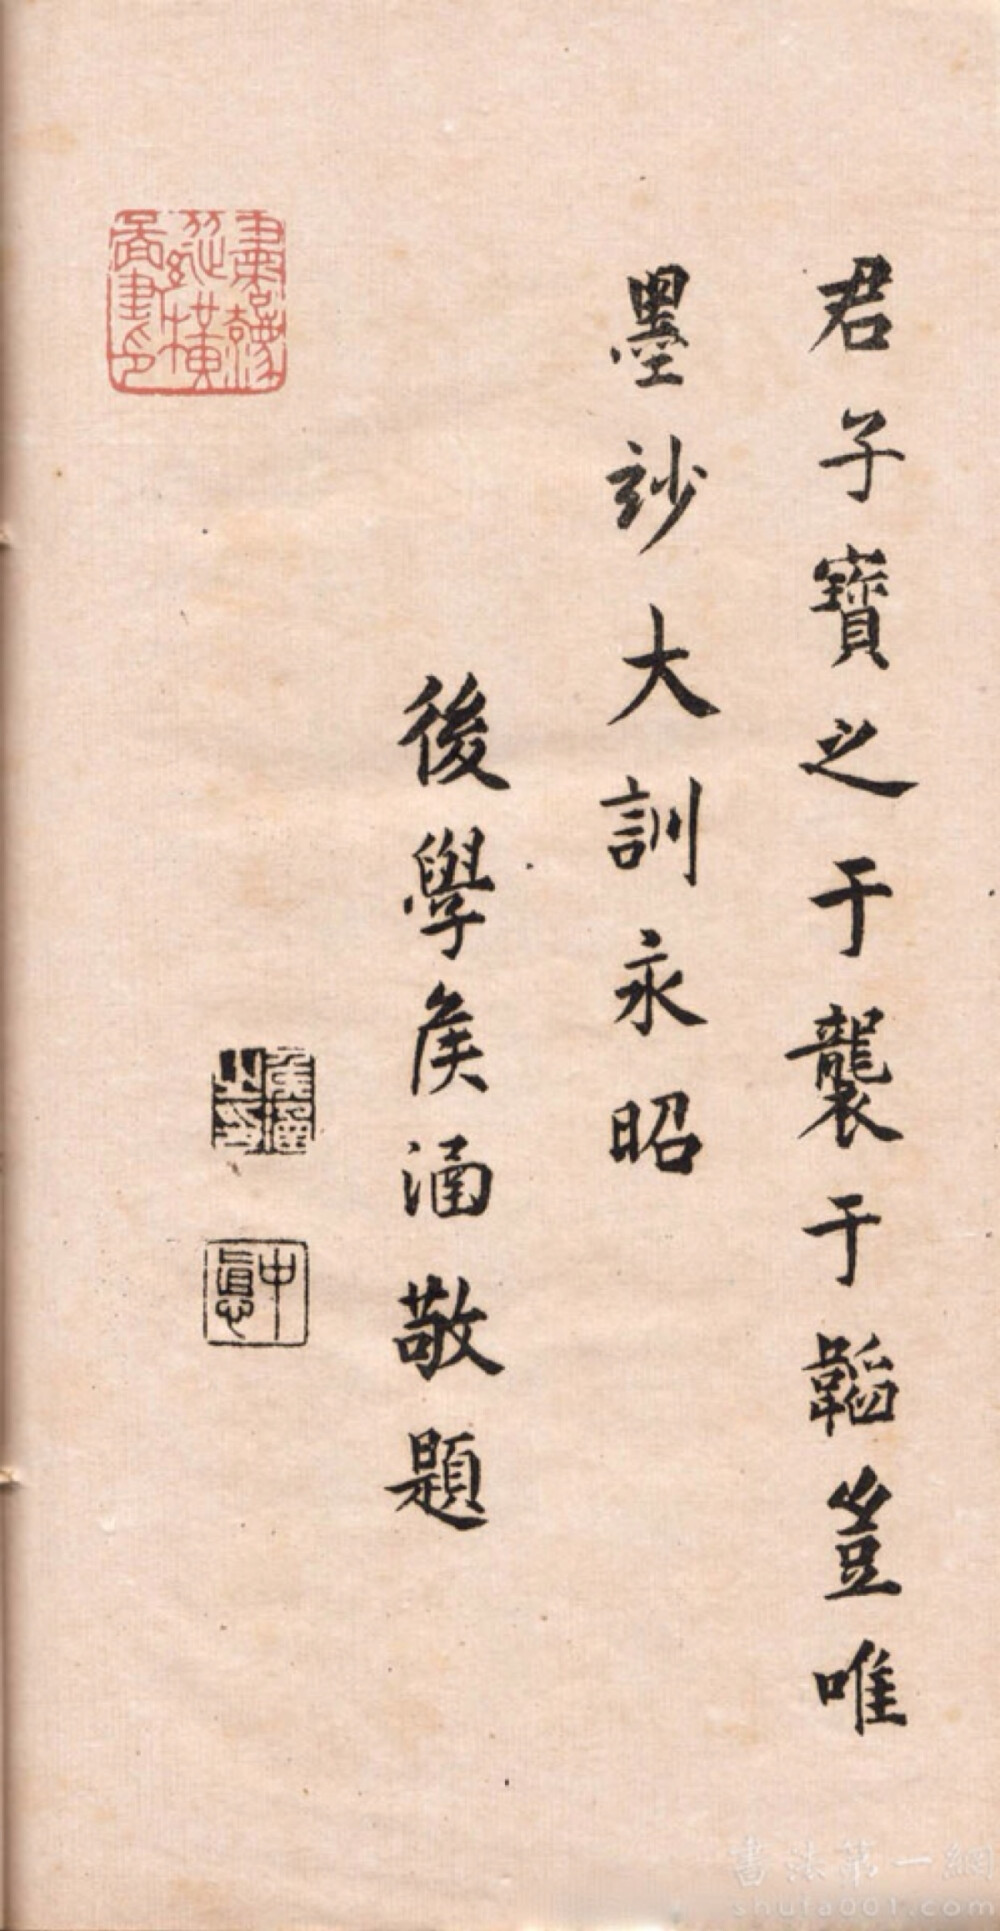 君子寶之于襲于韜豈唯
墨玅大訓永昭
後學侯涵敬題
書法第一網
shufa001.com